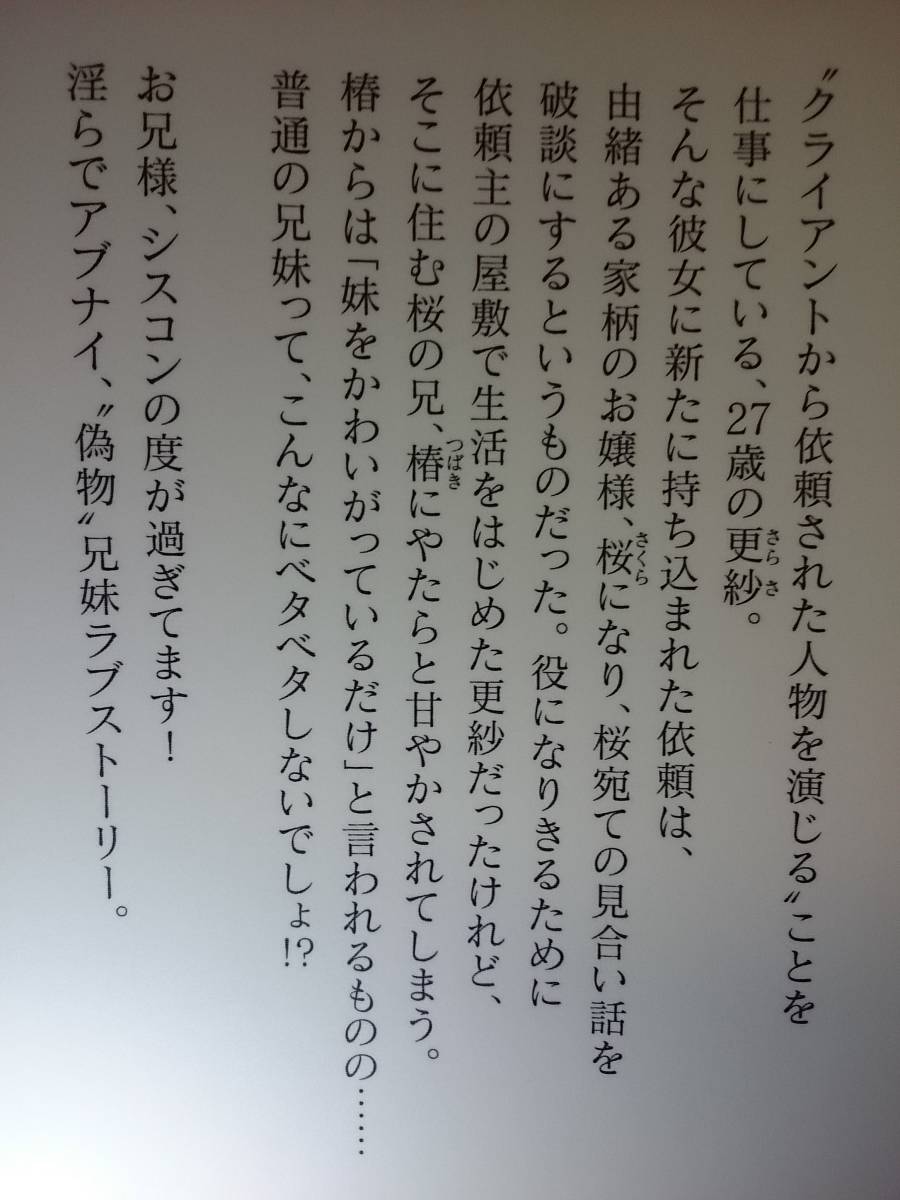 〝クライアントから依頼された人物を演じる〟ことを
仕事にしている、27歳の更紗。
そんな彼女に新たに持ち込まれた依頼は、
由緒ある家柄のお嬢様、桜になり、桜宛ての見合い話を
破談にするというものだった。役になりきるために
依頼主の屋敷で生活をはじめた更紗だったけれど、
そこに住む桜の兄、椿にやたらと甘やかされてしまう。
椿からは「妹をかわいがっているだけ」と言われるものの……
普通の兄妹って、こんなにベタベタしないでしょ!?
お兄様、シスコンの度が過ぎてます！
淫らでアブナイ、〝偽物〟兄妹ラブストーリー。
さらさ
さくら
つばき